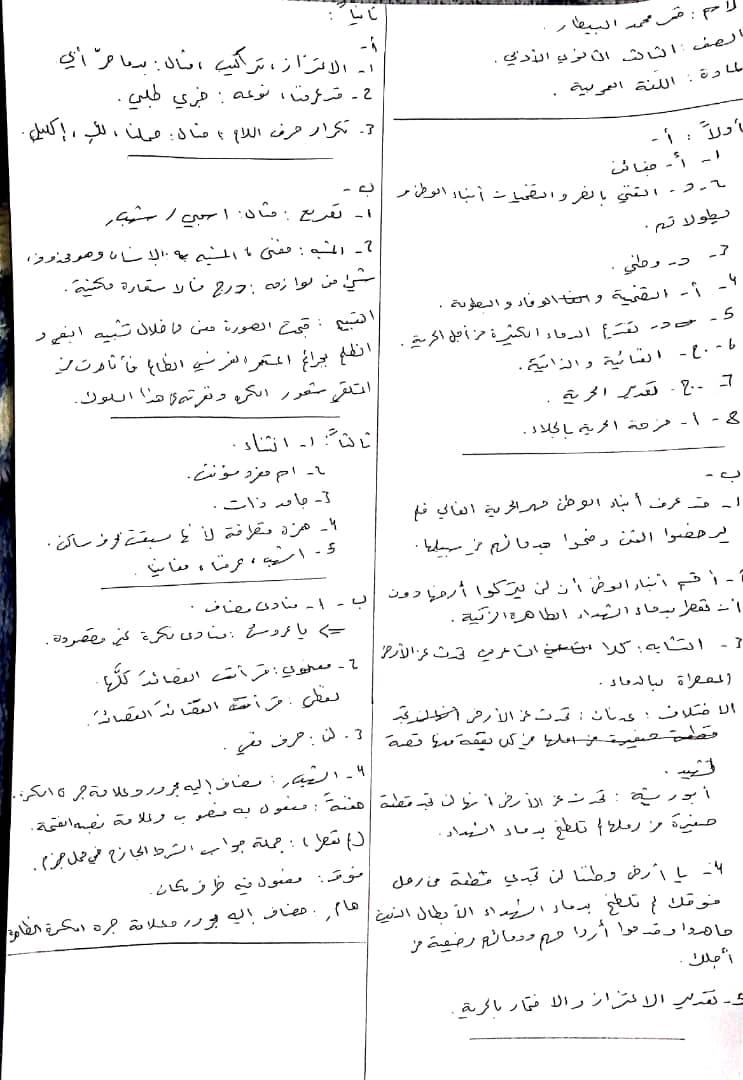 الاسم: قمر محمد البيطار.
الصف: الثالث الثانوي الأدبي.
المادة: اللغة العربية.
أولاً: أ-
1- أ- جفائن
2- د- التغني بالنصر و التضحيات أبناء الوطن و
بطولاتهم.
3- د- وطني.
4- أ- التضحية و الوفاء و البطولة.
5- د- تقديم الدماء الكثيرة من أجل الحرية.
6- ج- الغنائية و الذاتية.
7- ج. تقدير الحرية.
8- أ- فرحة الحرية بالجلاء.
ب-
1- قد عرف أبناء الوطن مهر الحرية الغالي فلم
يرخصوا الثمن وضحوا بدمائهم في سبيلها.
2- أقسم أبناء الوطن أن لن يتركوا أرضها دون
أن تعطر بدماء الشهداء الطاهرة الزكية.
3- التشابه: كلا الشاعرين تحدث عن الأرض
المعطرة بالدماء.
الاختلاف: عدنان: تحدث عن الأرض
من كل بقعة منها قصة
شهيد.
أبو ريشة: تحدث عن الأرض أنها لن تجد قطعة
صغيرة من رملها لم تلطخ بدماء الشهداء.
4- يا أرض وطننا لن تجدي قطعة من رمل
فوقك لم تلطخ بدماء الشهداء الأبطال الذين
جاهدوا وقدموا أرواحهم ودمائهم رخيصة من
أجلك.
5- تقدير الاعتزاز والافتخار بالحرية.
ثانياً:
أ-
1- الاعتزاز، تراكيب، مثال: بدما حرّ أبي
2- قد عرفنا، نوعه: خبري طلبي.
3- تكرار حرف اللام، مثال: حملنا، لك، إكليل.
ب-
1- تقريع: مثال: اسحبي / شهباء
2- المشبه: مغنى، المشبه به: الإنسان وهو محذوف،
شيئاً من لوازمه: درج فالاستعارة مكنية.
التقبيح: قبحت الصورة من خلال تشبيه البغي و
الظلم بجرائم المستعمر الفرنسي الظالم فأثارت في
المتلقي شعور الكره ونفرته من هذا السلوك.
ثالثاً: 1- انتشاء.
2- اسم مفرد مؤنث.
3- جامد ذات.
4- همزة متطرفة لأنها سبقت بحرف ساكن.
5- اسحب، عرفنا، مغانينا.
ب- 1- منادى مضاف.
<= يا عروسُ: منادى نكرة غير مقصودة.
2- معنوي: قرأت القصائدَ كلَّها.
لفظي: قرأت القصائدَ القصائدَ.
3. لن: حرف نفي.
4- الشهباء: مضاف إليه مجرور وعلامة جره الكسرة.
حفنةً: مفعول به منصوب وعلامة نصبه الفتحة.
(لم تعطر): جملة جواب الشرط الجازم في محل جزم.
فوق: مفعول فيه ظرف مكان.
هامِ: مضاف إليه مجرور وعلامة جره الكسرة الظاهرة